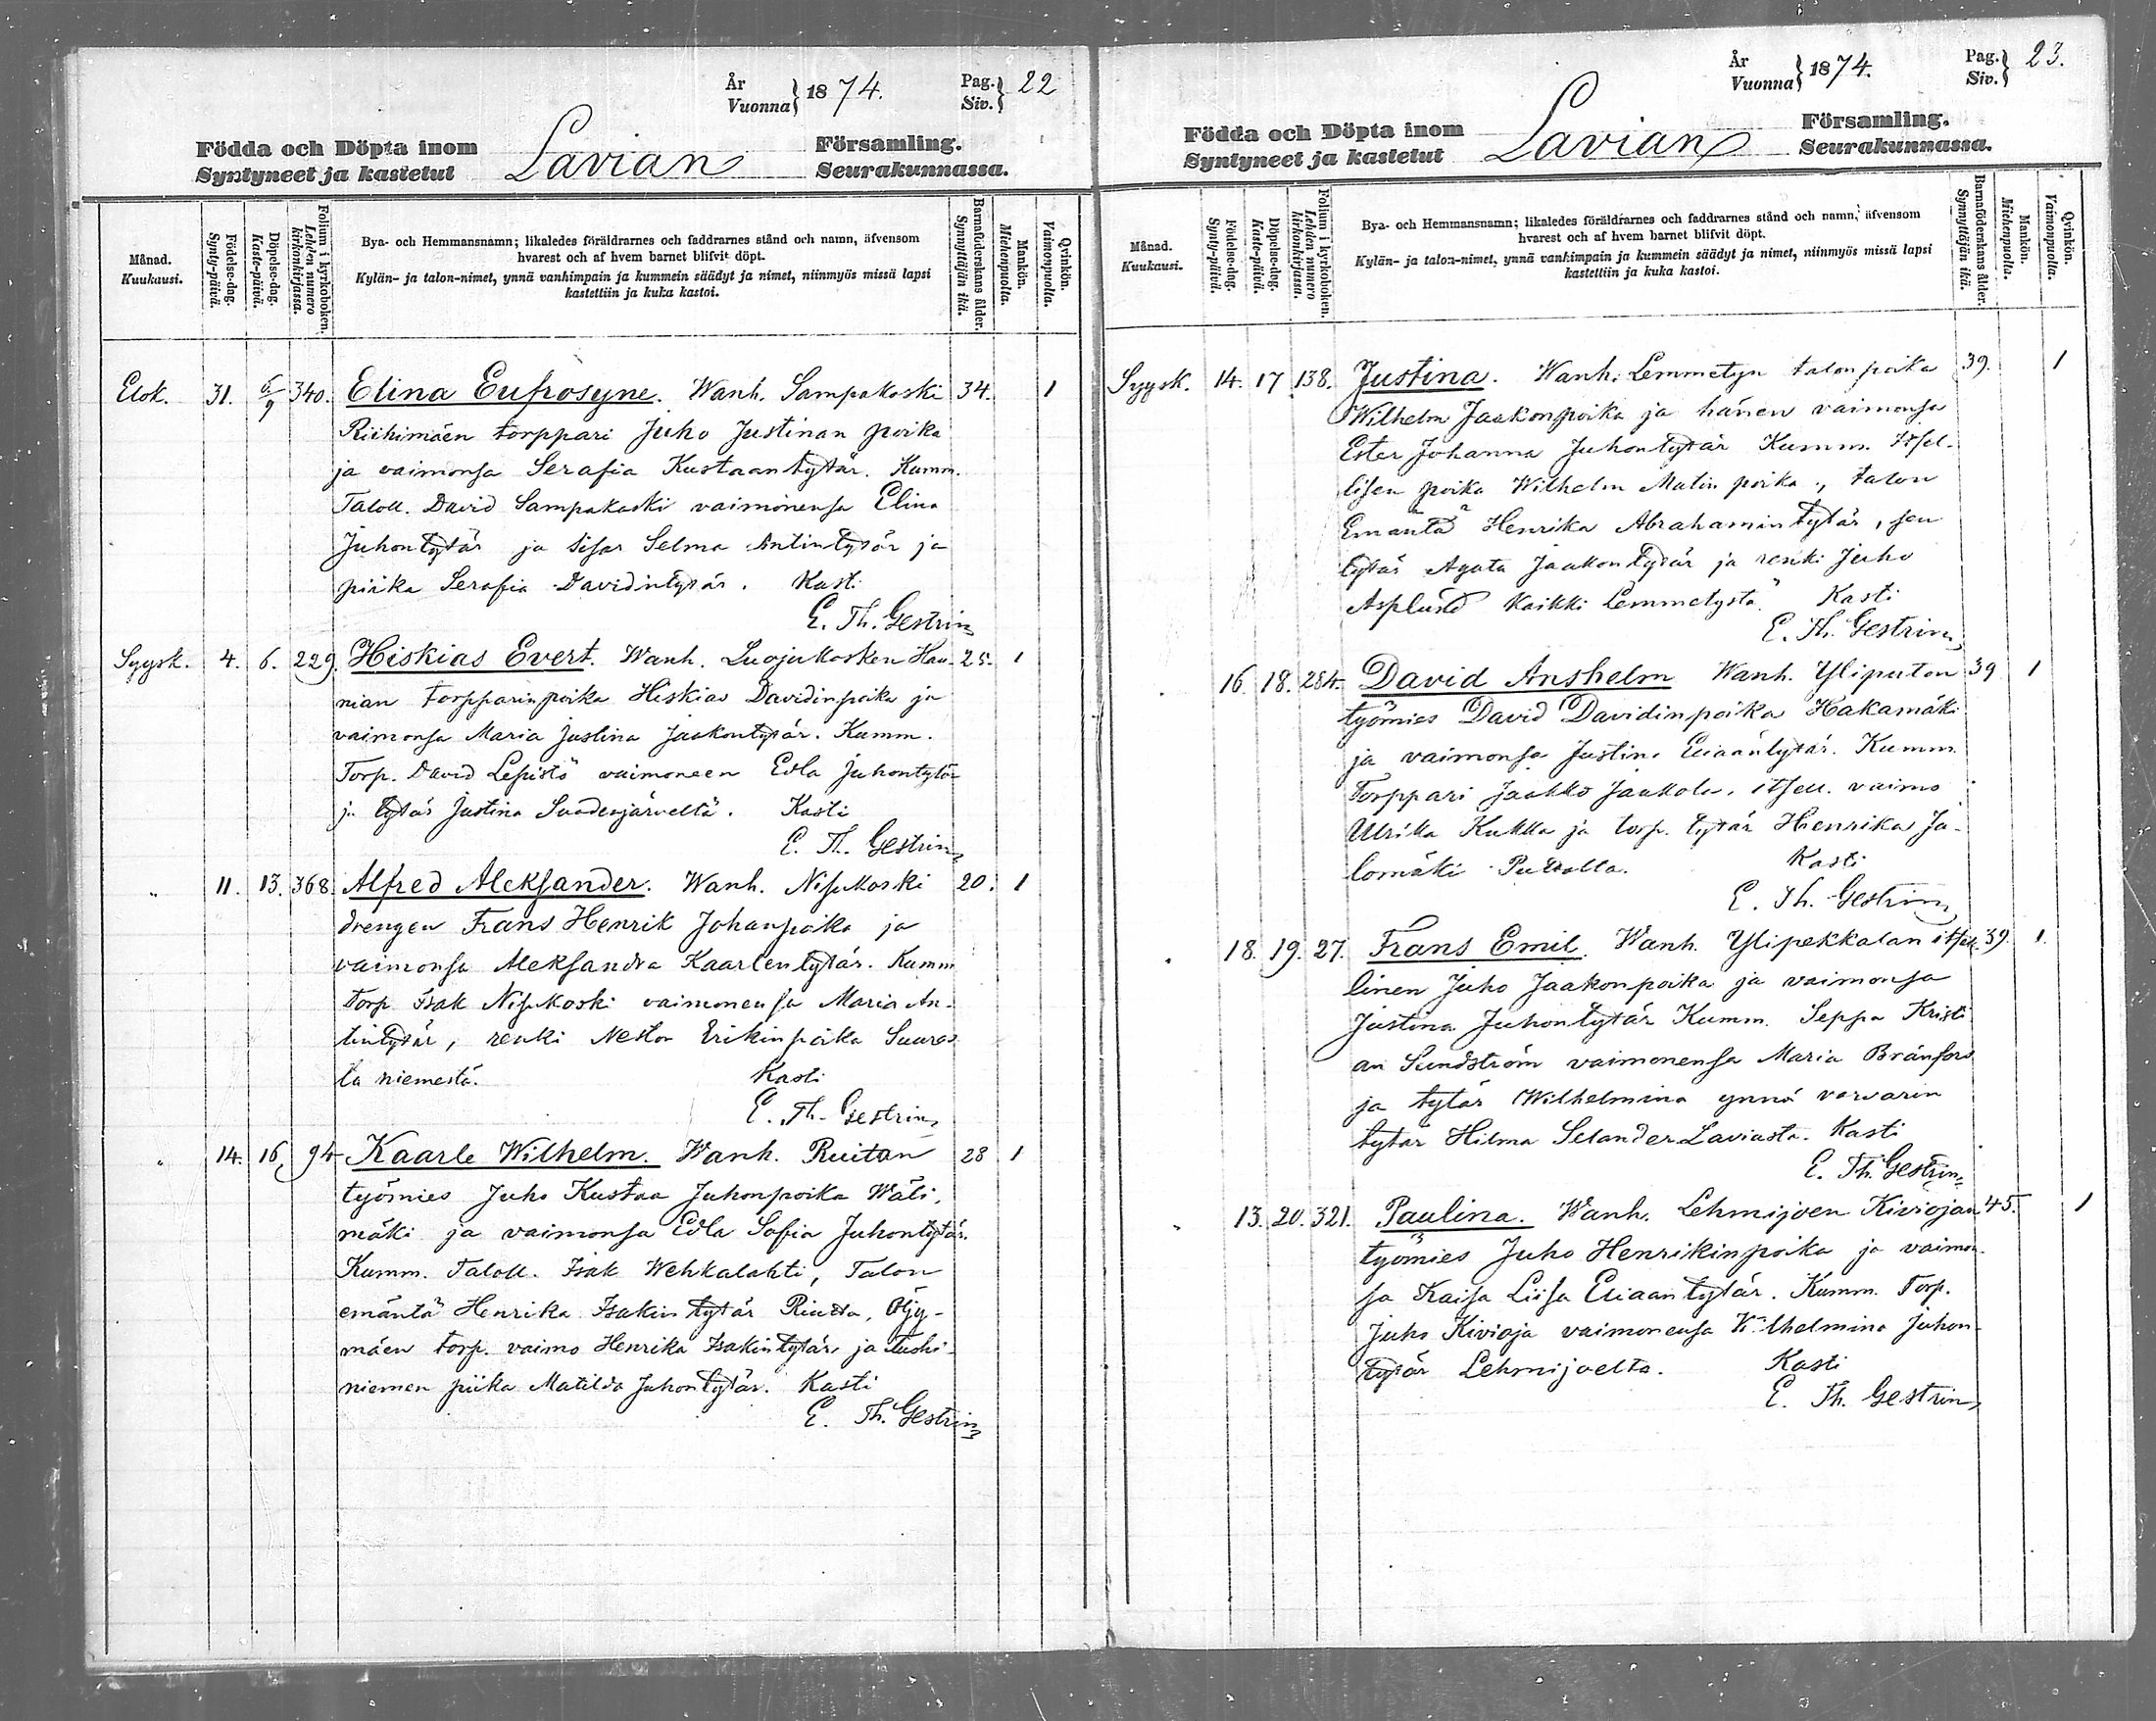 År
Vuonna } 1874.
Pag.
Siv. } 22
Födda och Döpta inom
Syntyneet ja kastetut
Lavian
Församling.
Seurakunnassa.
Månad.
Kuukausi.
Födelse-dag.
Synty-päivä.
Döpelse-dag.
Kaste-päivä.
Folium i kyrkoboken.
Lehden numero
kirkonkirjassa.
Bya- och Hemmansnamn; likaledes föräldrarnes och faddrarnes stånd och namn, äfvensom
hvarest och af hvem barnet blifvit döpt.
Kylän- ja talon-nimet, ynnä vanhimpain ja kummein säädyt ja nimet, niinmyös missä lapsi
kastettiin ja kuka kastoi.
Barnaföderskans ålder.
Synnyttäjän ikä.
Mankön.
Miehenpuolta.
Qvinkön.
Vaimonpuolta.
Elok. 31. 6/9 340. Elina Eufrosyne. Wanh. Sampakoski 34. 1
Riihimäen torppari Juho Justinan poika
ja vaimonsa Serafia Kustaantytär. Kumm.
Taloll. David Sampakoski vaimonensa Elina
Juhontytär ja sisar Selma Antintytär ja
piika Serafia Davidintytär. Kasti
E. Th. Gestrin
Syysk. 4. 6. 229. Hiskias Evert. Wanh. Luojukosken Hau- 25. 1
nian torpparinpoika Hiskias Davidinpoika ja
vaimonsa Maria Justina Jaakontytär. Kumm.
Torp. David Lepistö vaimoneen Edla Juhontytär
ja tytär Justina Suodenjärveltä. Kasti
E. Th. Gestrin
" 11. 13. 368. Alfred Aleksander. Wanh. Nisukoski 20. 1
drengen Frans Henrik Johanpoika ja
vaimonsa Aleksandra Kaarlentytär. Kumm
torp. Isak Nisukoski vaimonensa Maria An-
tintytär, renki Nestor Erikinpoika Suures
ta niemestä. Kasti
E. Th. Gestrin
" 14. 16. 94 Kaarle Wilhelm. Wanh. Ruitan 28 1
työmies Juho Kustaa Juhonpoika Wäli-
mäki ja vaimonsa Edla Sofia Juhontytär.
Kumm. Taloll. Isak Wehkalahti, Talon
emäntä Henrika Isakin tytär Riutta, Öljy-
mäen torp. vaimo Henrika Isakintytär, ja
niemen piika Matilda Juhontytär. Kasti
E. Th. Gestrin
År
Vuonna } 1874.
Pag.
Siv. } 23.
Födda och Döpta inom
Syntyneet ja kastetut
Lavian
Församling.
Seurakunnassa.
Månad.
Kuukausi.
Födelse-dag.
Synty-päivä.
Döpelse-dag.
Kaste-päivä.
Folium i kyrkoboken.
Lehden numero
kirkonkirjassa.
Bya- och Hemmansnamn; likaledes föräldrarnes och faddrarnes stånd och namn, äfvensom
hvarest och af hvem barnet blifvit döpt.
Kylän- ja talon-nimet, ynnä vanhimpain ja kummein säädyt ja nimet, niinmyös missä lapsi
kastettiin ja kuka kastoi.
Barnaföderskans ålder.
Synnyttäjän ikä.
Mankön.
Miehenpuolta.
Qvinkön.
Vaimonpuolta.
Syysk. 14. 17 138. Justina. Wanh. Lemmetyn talonpoika 39. 1
Wilhelm Jaakonpoika ja hänen vaimonsa
Ester Johanna Juhontytär Kumm. Itsel-
lisen poika Wilhelm Matin poika, talon
Emäntä Henrika Abrahamintytär, sen
tytär Agata Jaakontytär ja renki Juho
Asplund kaikki Lemmetystä. Kasti
E. Th. Gestrin
" 16. 18. 284. David Anshelm Wanh. Yliputon 39 1
työmies David Davidinpoika Hakamäki
ja vaimonsa Justina Eliaantytär. Kumm.
Torppari Jaakko Jaakola, itsell. vaimo
Ulrika Kukka ja torp. tytär Henrika Ja-
lomäki Putolla. Kasti
E. Th. Gestrin
" 18. 19. 27. Frans Emil. Wanh. Ylipekkalan itsel- 39. 1.
linen Juho Jaakonpoika ja vaimonsa
Justina Juhontytär Kumm. Seppä Kristi
an Sundström vaimonensa Maria Bränfors
ja tytär Wilhelmina ynnä varvarin
tytär Hilma Selander Laviasta. Kasti
E. Th. Gestrin
" 13. 20. 321. Paulina. Wanh. Lehmijoen Kiviojan 45. 1
työmies Juho Henrikinpoika ja vaimon-
sa Kaisa Liisa Eliaantytär. Kumm. Torp.
Juho Kivioja vaimonensa Wilhelmina Juhon-
tytär Lehmijoelta. Kasti
E. Th. Gestrin